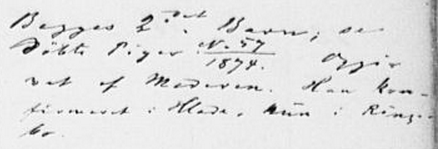 Begges 2det Barn; se
Döbte Piger N. 57
1874. Opgi-
vet af Moderen. Han kon-
firmeret i Hlade, hun i Ringe-
bo.